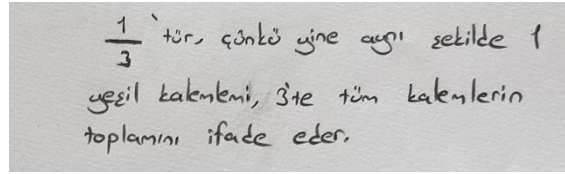 1/3 'tür, çünkü yine aynı şekilde 1
yeşil kalemlemi, 3'te tüm kalemlerin
toplamını ifade eder.